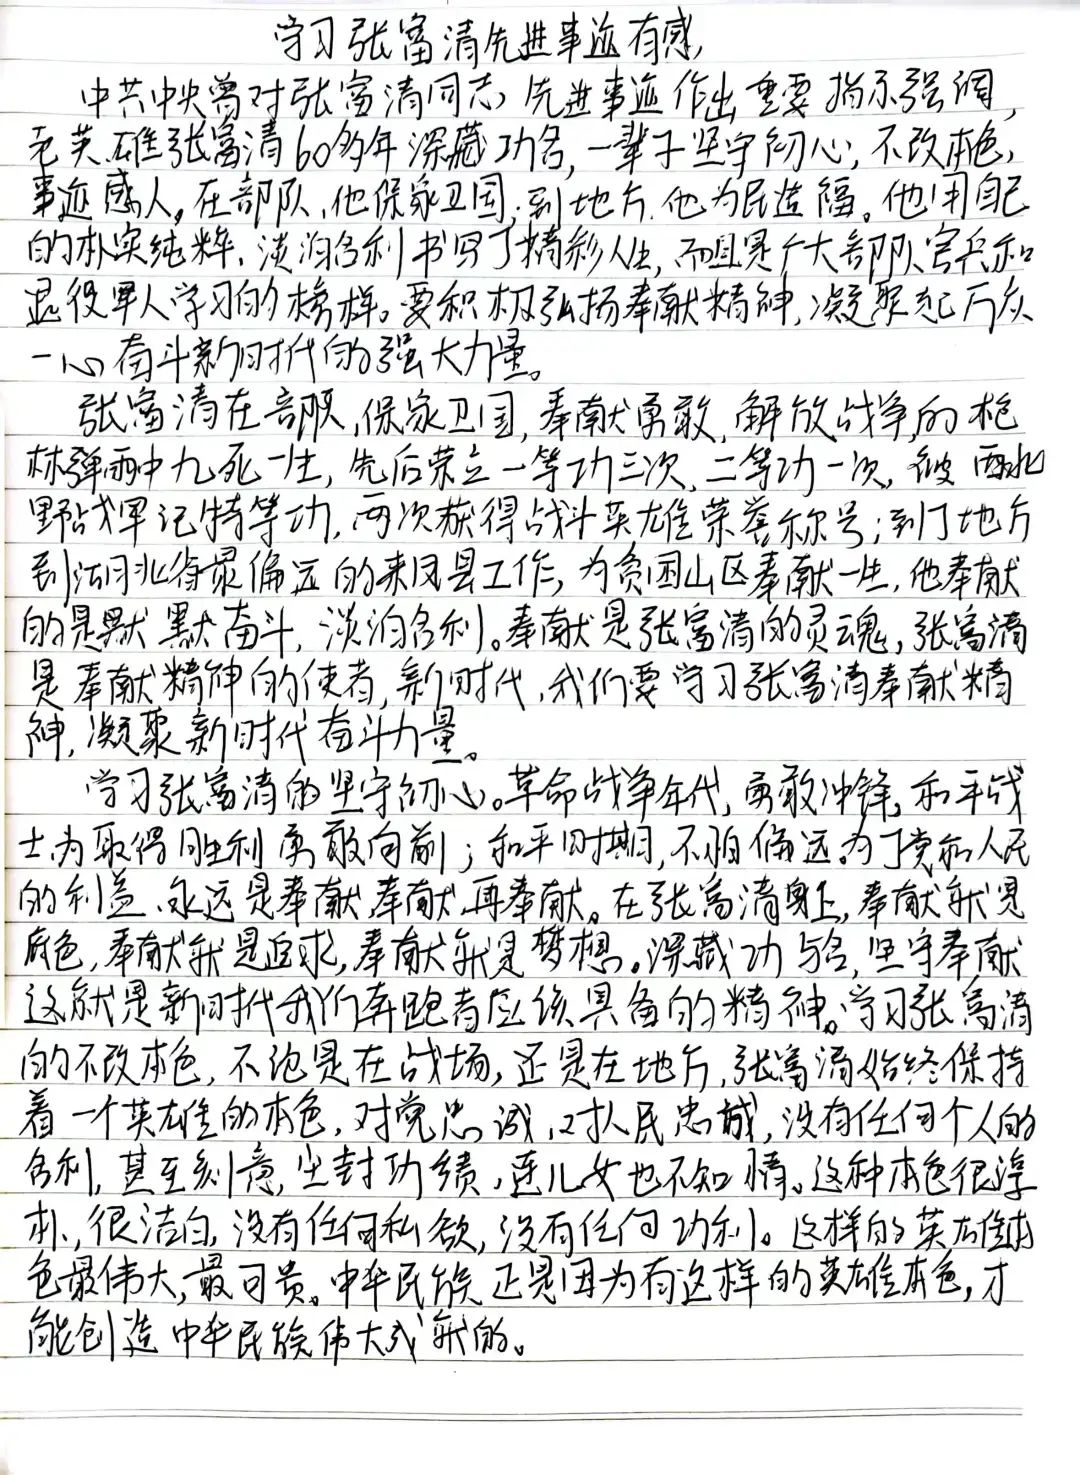 学习张富清先进事迹有感
中共中央曾对张富清同志先进事迹作出重要指示强调,
老英雄张富清60多年深藏功名,一辈子坚守初心,不改本色,
事迹感人。在部队,他保家卫国;到地方,他为民造福。他用自己
的朴实纯粹、淡泊名利书写了精彩人生,而且是广大部队官兵和
退役军人学习的榜样。要积极弘扬奉献精神,凝聚起万众
一心奋斗新时代的强大力量。
张富清在部队,保家卫国,奉献勇敢,解放战争的枪
林弹雨中九死一生,先后荣立一等功三次,二等功一次,被西北
野战军记特等功,两次获得战斗英雄荣誉称号;到了地方
到湖北省最偏远的来凤县工作,为贫困山区奉献一生,他奉献
的是默默奋斗,淡泊名利。奉献是张富清的灵魂,张富清
是奉献精神的使者,新时代,我们要学习张富清奉献精
神,凝聚新时代奋斗力量。
学习张富清的坚守初心。革命战争年代,勇敢冲锋,和平战
士为取得胜利勇敢向前;和平时期,不怕偏远,为了党和人民
的利益,永远是奉献,奉献,再奉献。在张富清身上,奉献就是
底色,奉献就是追求,奉献就是梦想。深藏功与名,坚守奉献
这就是新时代我们奔跑者应该具备的精神。学习张富清
的不改本色,不论是在战场,还是在地方,张富清始终保持
着一个英雄的本色,对党忠诚,对人民忠诚,没有任何个人的
名利,甚至刻意尘封功绩,连儿女也不知情。这种本色很淳
朴,很洁白,没有任何私欲,没有任何功利。这样的英雄本
色最伟大,最可贵。中华民族正是因为有这样的英雄本色,才
能创造中华民族伟大成就的。